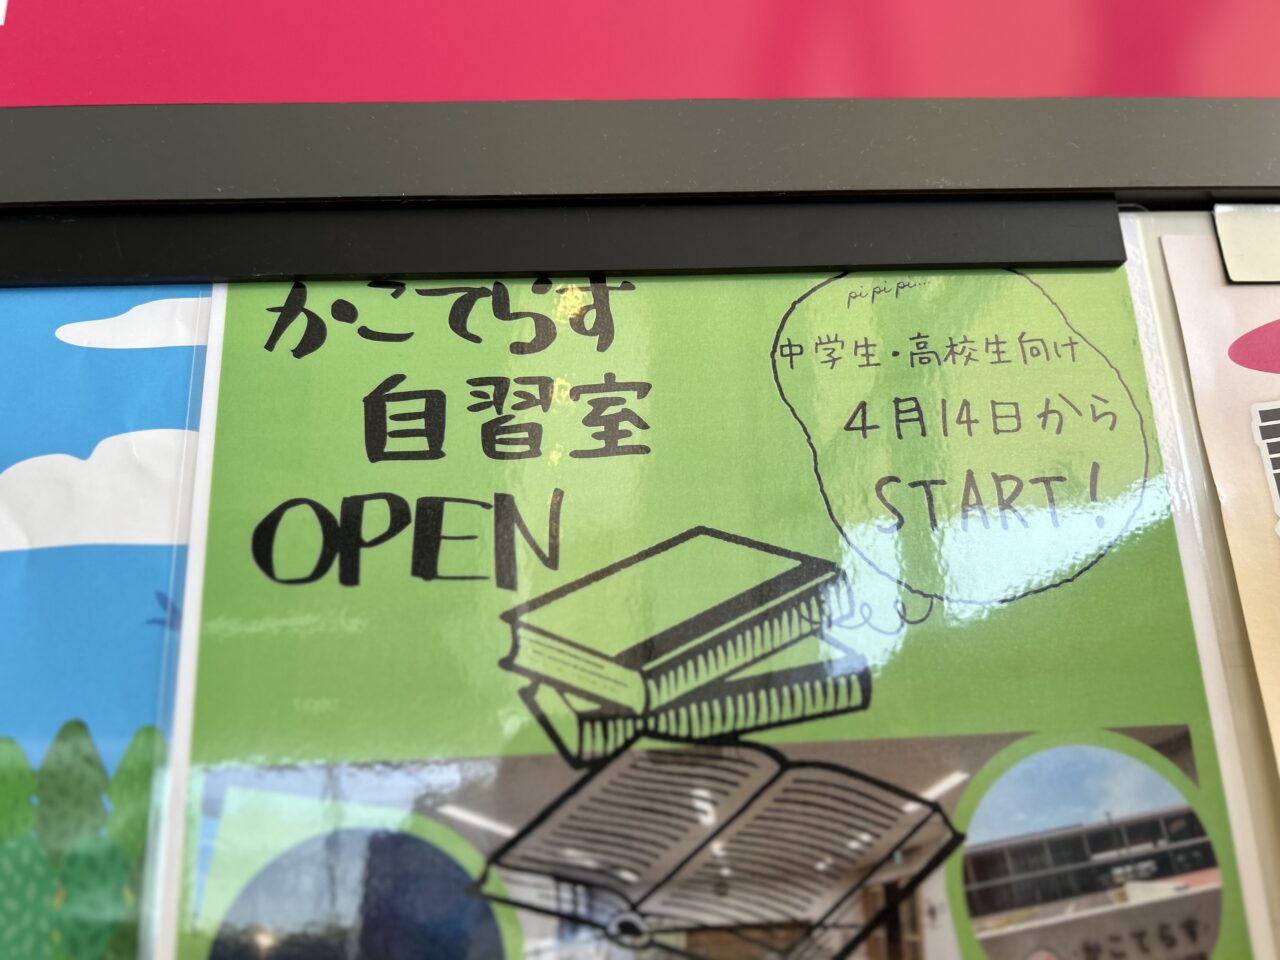 かこてらす
自習室
OPEN
pi pi pi...
中学生・高校生向け
4月14日から
START!
かこてらす